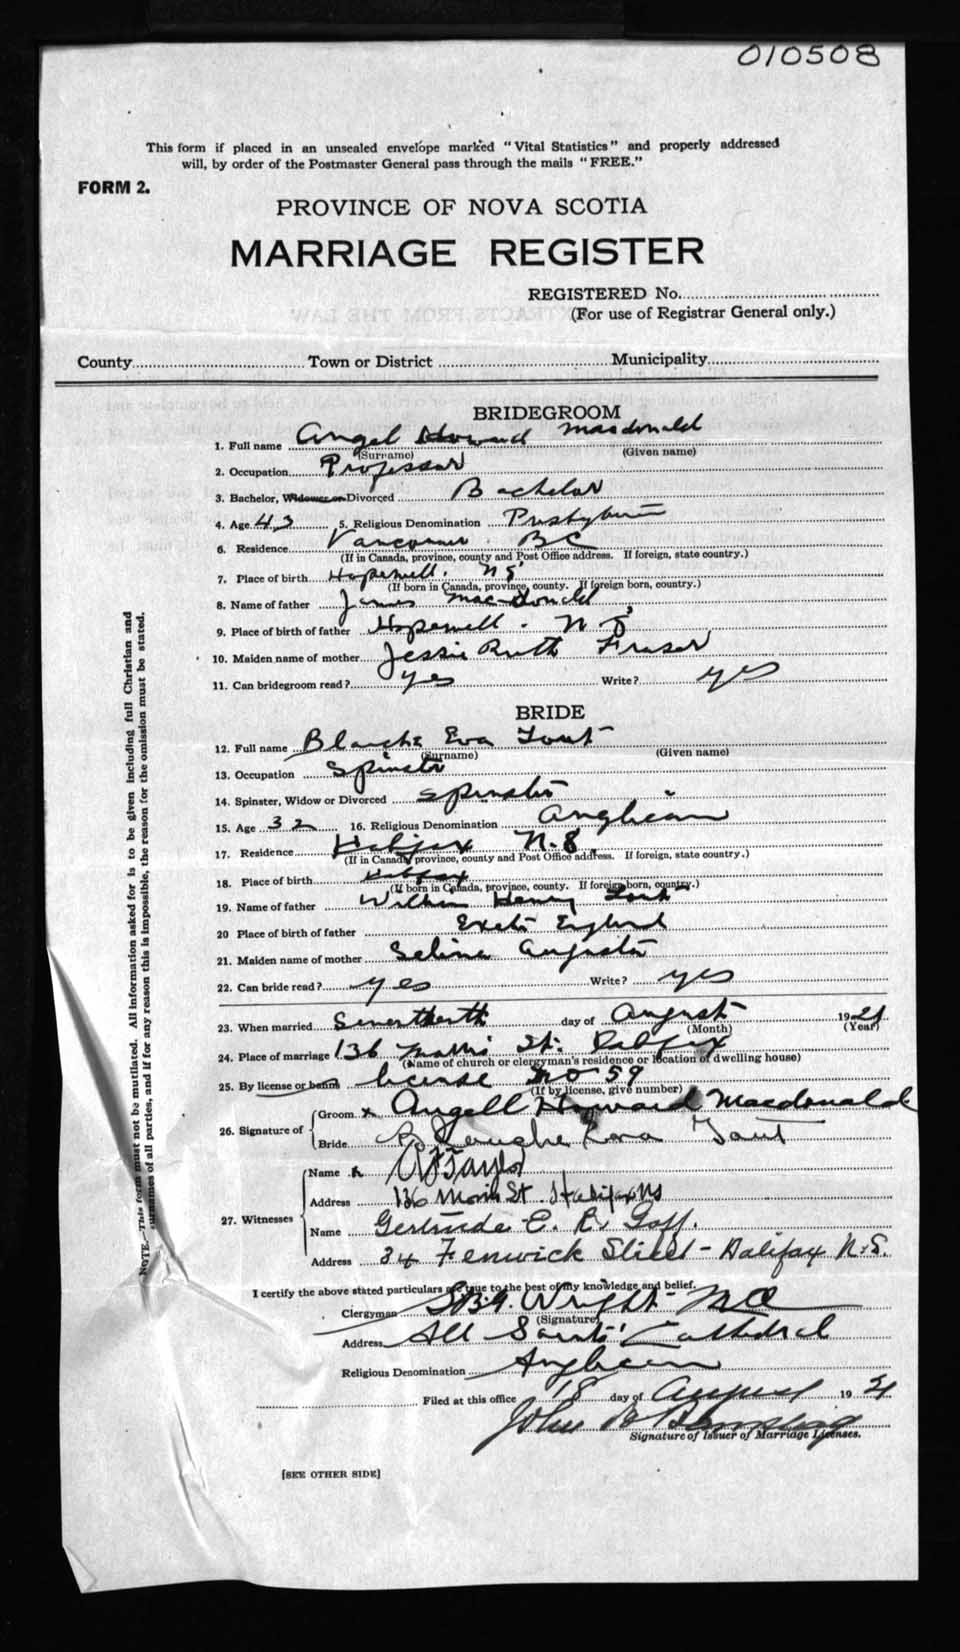 010508
This form if placed in an unsealed envelope marked "Vital Statistics" and properly addressed
will, by order of the Postmaster General pass through the mails "FREE."
FORM 2.
PROVINCE OF NOVA SCOTIA
MARRIAGE REGISTER
REGISTERED No.
(For use of Registrar General only.)
County Town or District Municipality
BRIDEGROOM
1. Full name Angel Howard Macdonald
(Surname) (Given name)
2. Occupation Professor
3. Bachelor, Widower or Divorced Bachelor
4. Age 43 5. Religious Denomination
6. Residence Vancouver. BC
(If in Canada, province, county and Post Office address. If foreign, state country.)
7. Place of birth Hopewell. NS
(If born in Canada, province, county. If foreign born, country.)
8. Name of father James MacDonald
9. Place of birth of father Hopewell. NS
10. Maiden name of mother Jessie Ruth Fraser
11. Can bridegroom read? yes Write? yes
BRIDE
12. Full name Blanche Eva
(Surname) (Given name)
13. Occupation Spinster
14. Spinster, Widow or Divorced Spinster
15. Age 32 16. Religious Denomination Anglican
17. Residence Halifax N.S
(If in Canada, province, county and Post Office address. If foreign, state country.)
18. Place of birth Halifax
(If born in Canada, province, county. If foreign born, country.)
19. Name of father William Henry
20 Place of birth of father Exeter England
21. Maiden name of mother Selina Augusta
22. Can bride read? yes Write? yes
23. When married day of August 1921
(Month) (Year)
24. Place of marriage 136 Morris St. Halifax
(Name of church or clergyman's residence or location of dwelling house)
25. By license or banns license No 59
(If by license, give number)
26. Signature of Groom x Angell Howard Macdonald
Bride Blanche Eva
27. Witnesses Name
Address 136 Morris St. Halifax NS
Name Gertrude E. R. Goff.
Address 34 Fenwick Street - Halifax N.S.
I certify the above stated particulars are true to the best of my knowledge and belief.
Clergyman Wright
(Signature)
Address All Saints' Cathedral
Religious Denomination Anglican
Filed at this office 18 day of August 1921
John
Signature of Issuer of Marriage Licenses.
[SEE OTHER SIDE]
NOTE.—This form must not be mutilated. All information asked for is to be given including full Christian and
surnames of all parties, and if for any reason this is impossible, the reason for the omission must be stated.